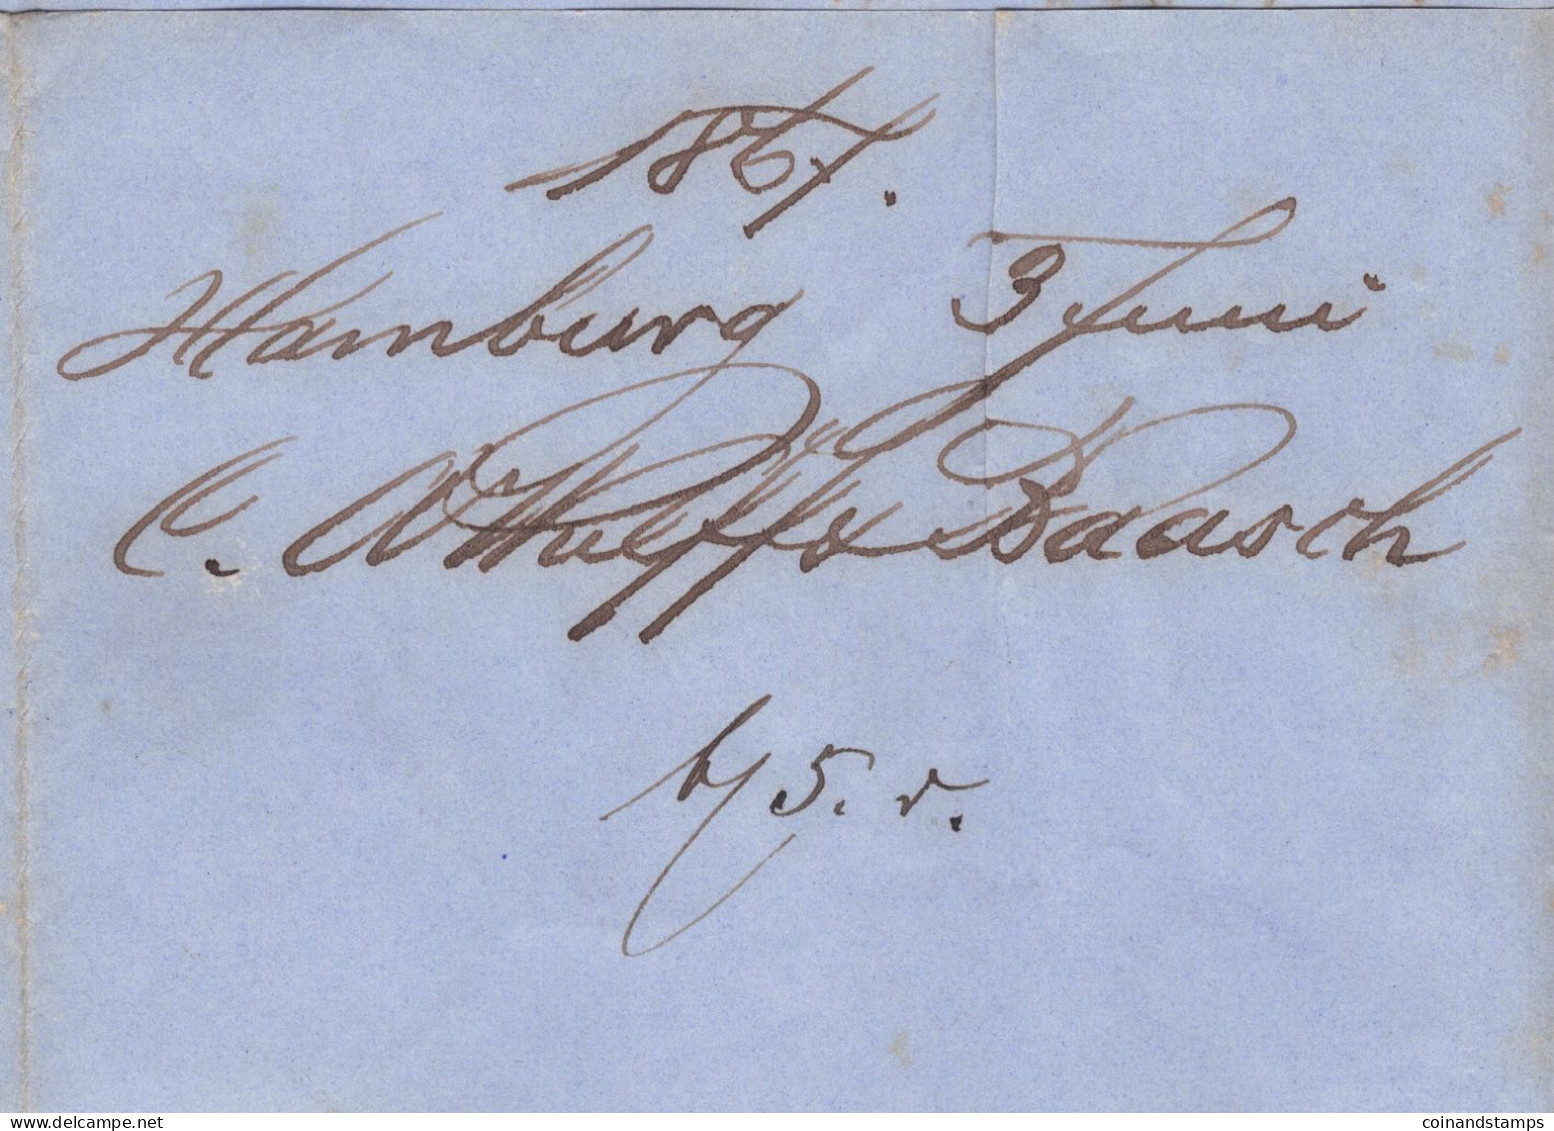 1867.
Hamburg 3 Juni
C. Baasch
b/ 5. r.
coinandstamps